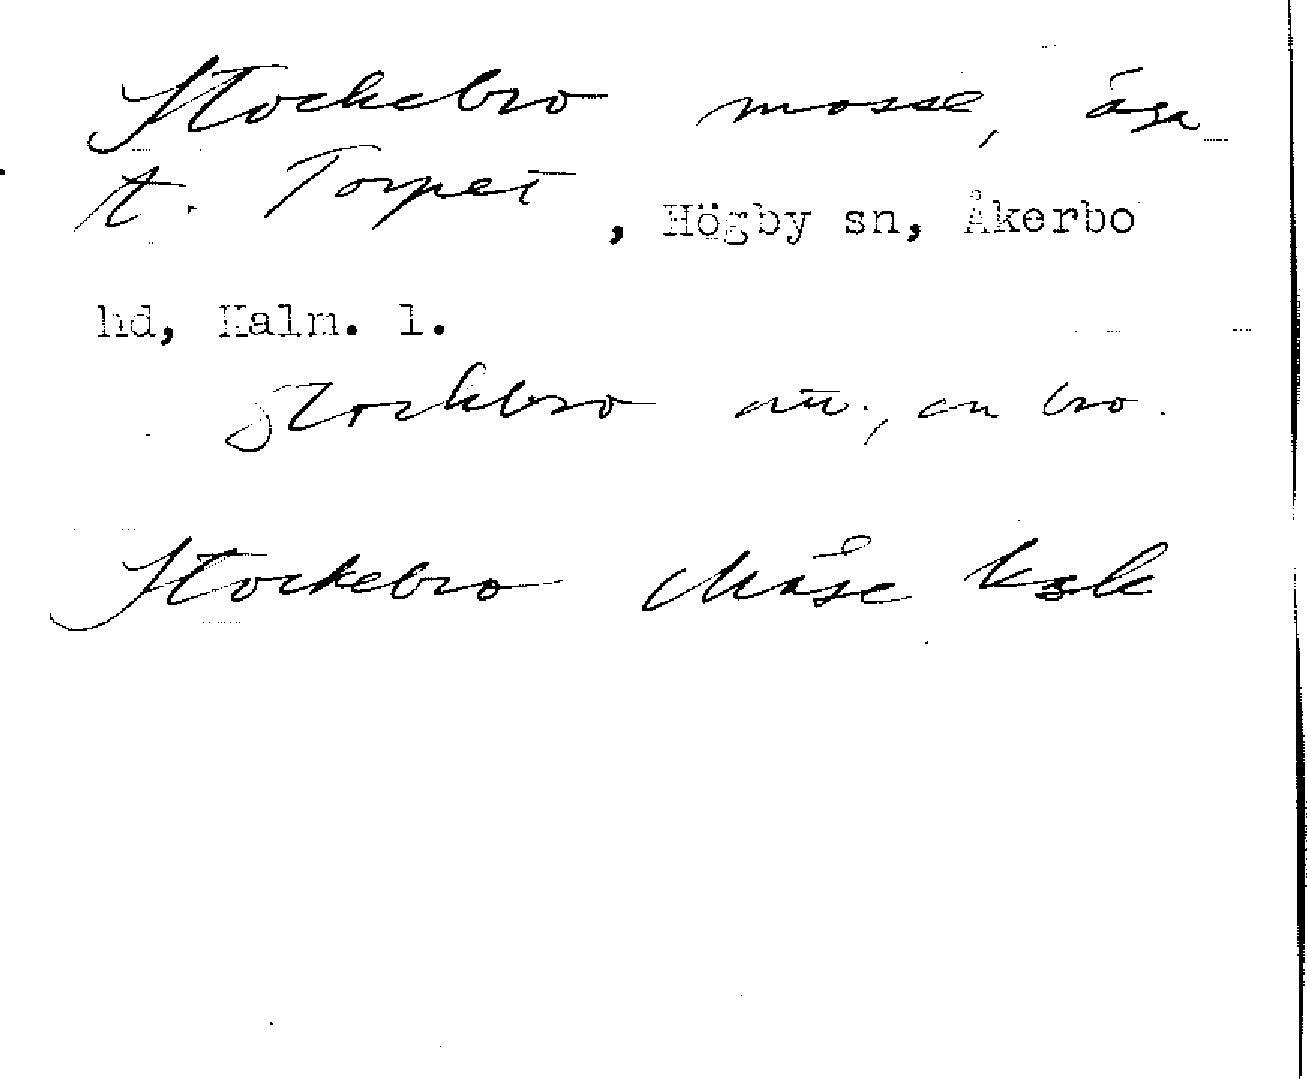 Stockebro mosse, äga
t. Torpet, Högby sn, Åkerbo
hd, Kalm. l.
Stockbro nu., en bro.
Stockebro Måse ksk